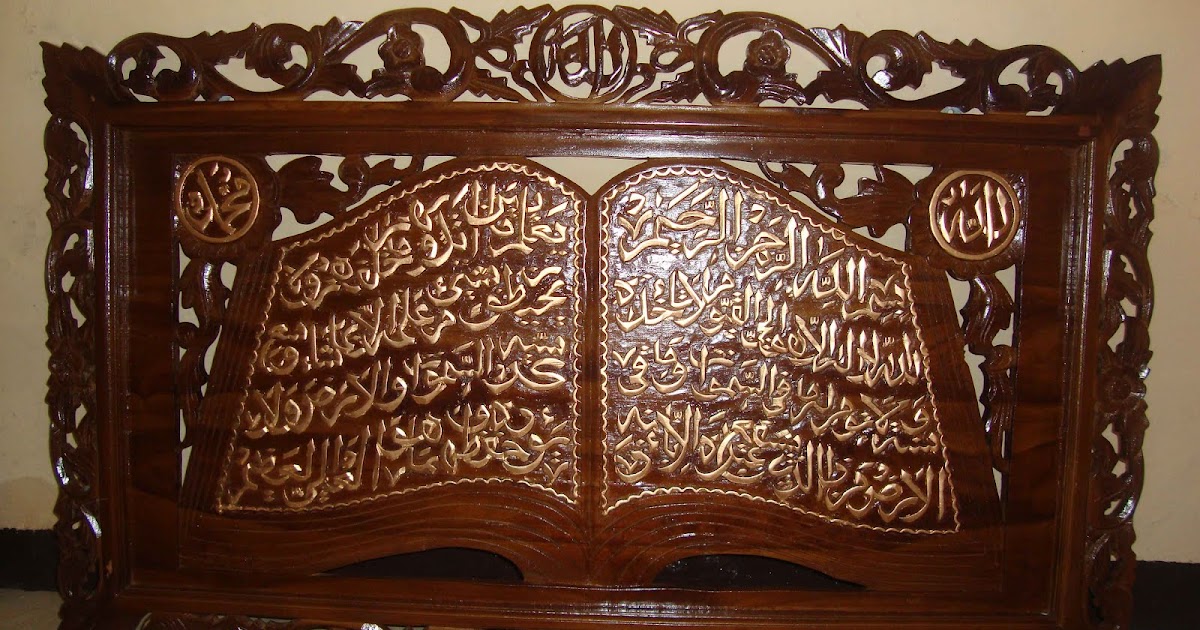 الله
محمد
بسم الله الرحمن الرحيم
الله لا اله الا هو الحي القيوم لا تأخذه
سنة ولا نوم له ما في السموات وما في
الارض من ذا الذي يشفع عنده الا باذنه
يعلم ما بين ايديهم وما خلفهم ولا
يحيطون بشيء من علمه الا بما شاء وسع
كرسيه السموات والارض ولا
يؤده حفظهما وهو العلي العظيم